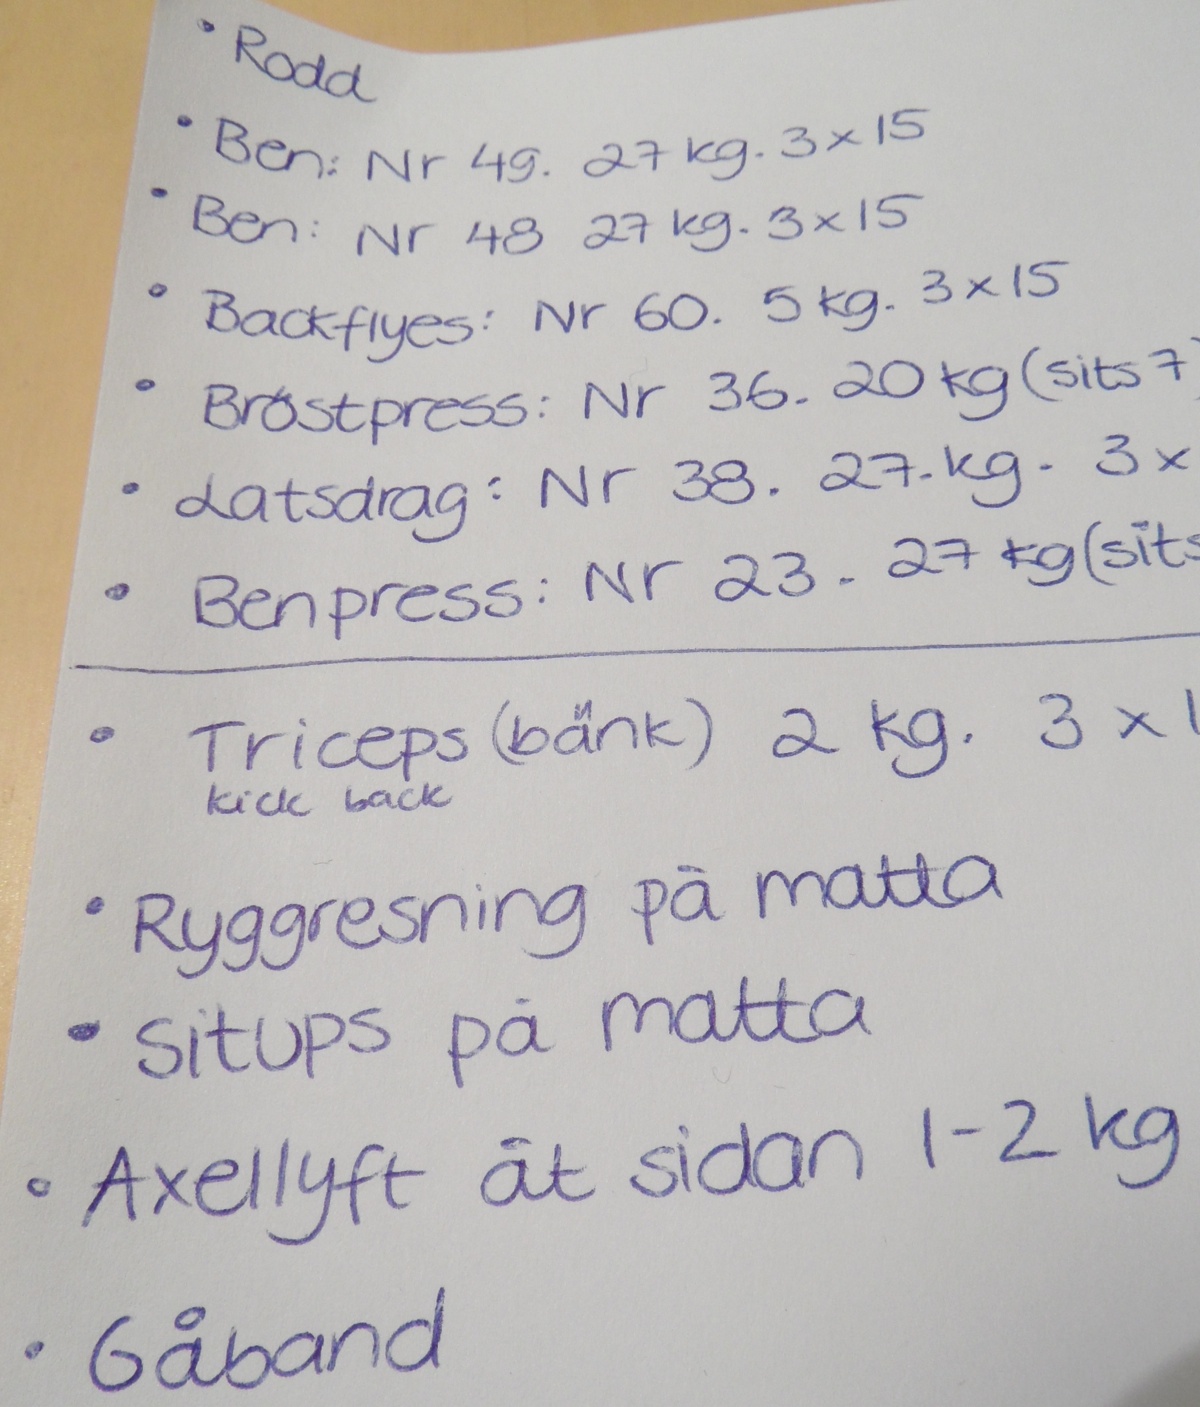 • Rodd
• Ben: Nr 49. 27 kg. 3 x 15
• Ben: Nr 48 27 kg. 3 x 15
• Backflyes: Nr 60. 5 kg. 3 x 15
• Bröstpress: Nr 36. 20 kg (sits 7)
• Latsdrag: Nr 38. 27. kg. 3 x
• Benpress: Nr 23. 27 kg (sits
• Triceps (bänk) 2 kg. 3 x 1
kick back
• Ryggresning på matta
• Situps på matta
• Axellyft åt sidan 1-2 kg
• Gåband